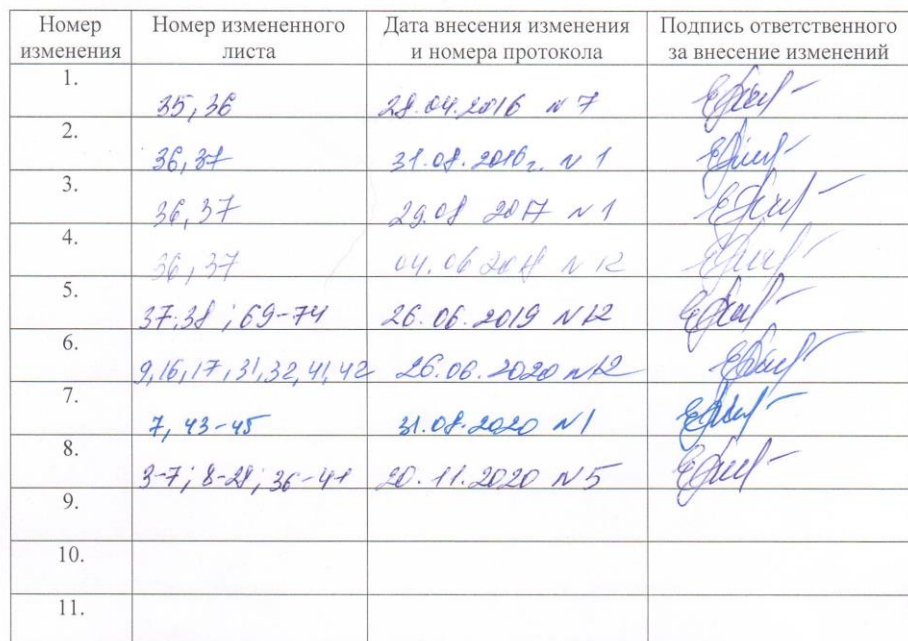 Номер изменения Номер измененного листа Дата внесения изменения и номера протокола Подпись ответственного за внесение изменений
1. 35, 36 28.04.2016 № 7
2. 36, 37 31.08.2016г. № 1
3. 36, 37 29.08 2017 № 1
4. 36, 37 04.06 2018 № 12
5. 37-38; 69-74 26.06.2019 № 12
6. 9, 16, 17, 31, 32, 41, 42 26.06.2020 № 12
7. 7, 43-45 31.08.2020 № 1
8. 3-7; 8-28; 36-41 20.11.2020 № 5
9.
10.
11.